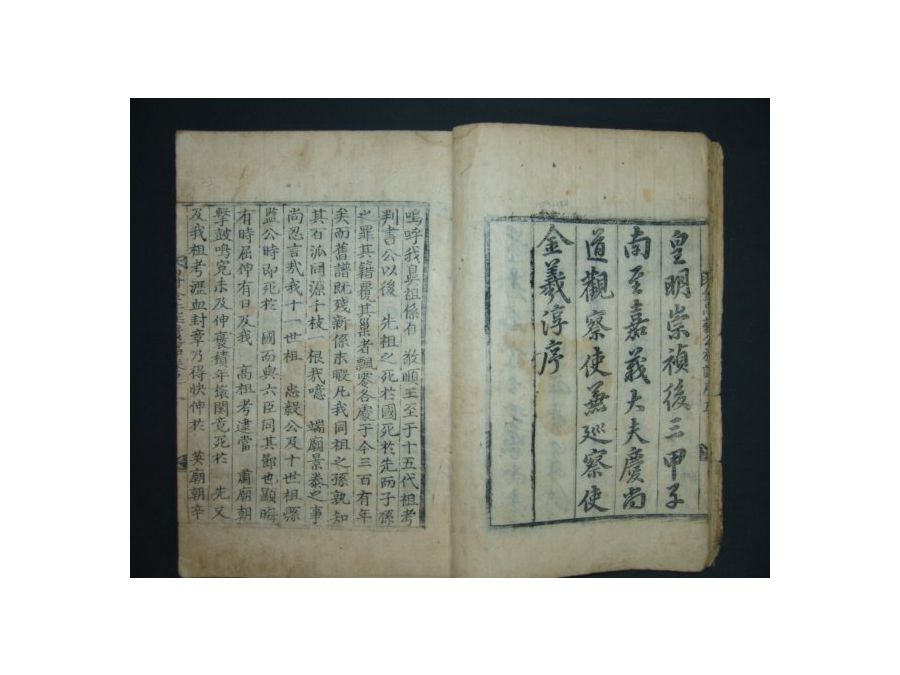 皇明崇禎後三甲子
南至嘉義大夫慶尚
道觀察使兼巡察使
金羲淳序
嗚呼我鼻祖係有 敬順王至于十五代祖考
判書公以後 先祖之死於國死於先而子孫
之罪其籍覆其巢者飄零各處于今三百有年
矣而舊譜既殘新係未暇凡我同祖之孫孰知
其百派同源千枝一根我噫 端廟景泰之事
尚忍言哉我十一世祖 忠毅公及十世祖縣
監公時即死於 國而與六臣同其節也顯晦
有時屈伸有日及我 高祖考逮當 肅廟朝
擊鼓鳴冤未及伸褒積年壞關竟死於 先又
及我祖考瀝血封章乃得快伸於 英廟朝辛